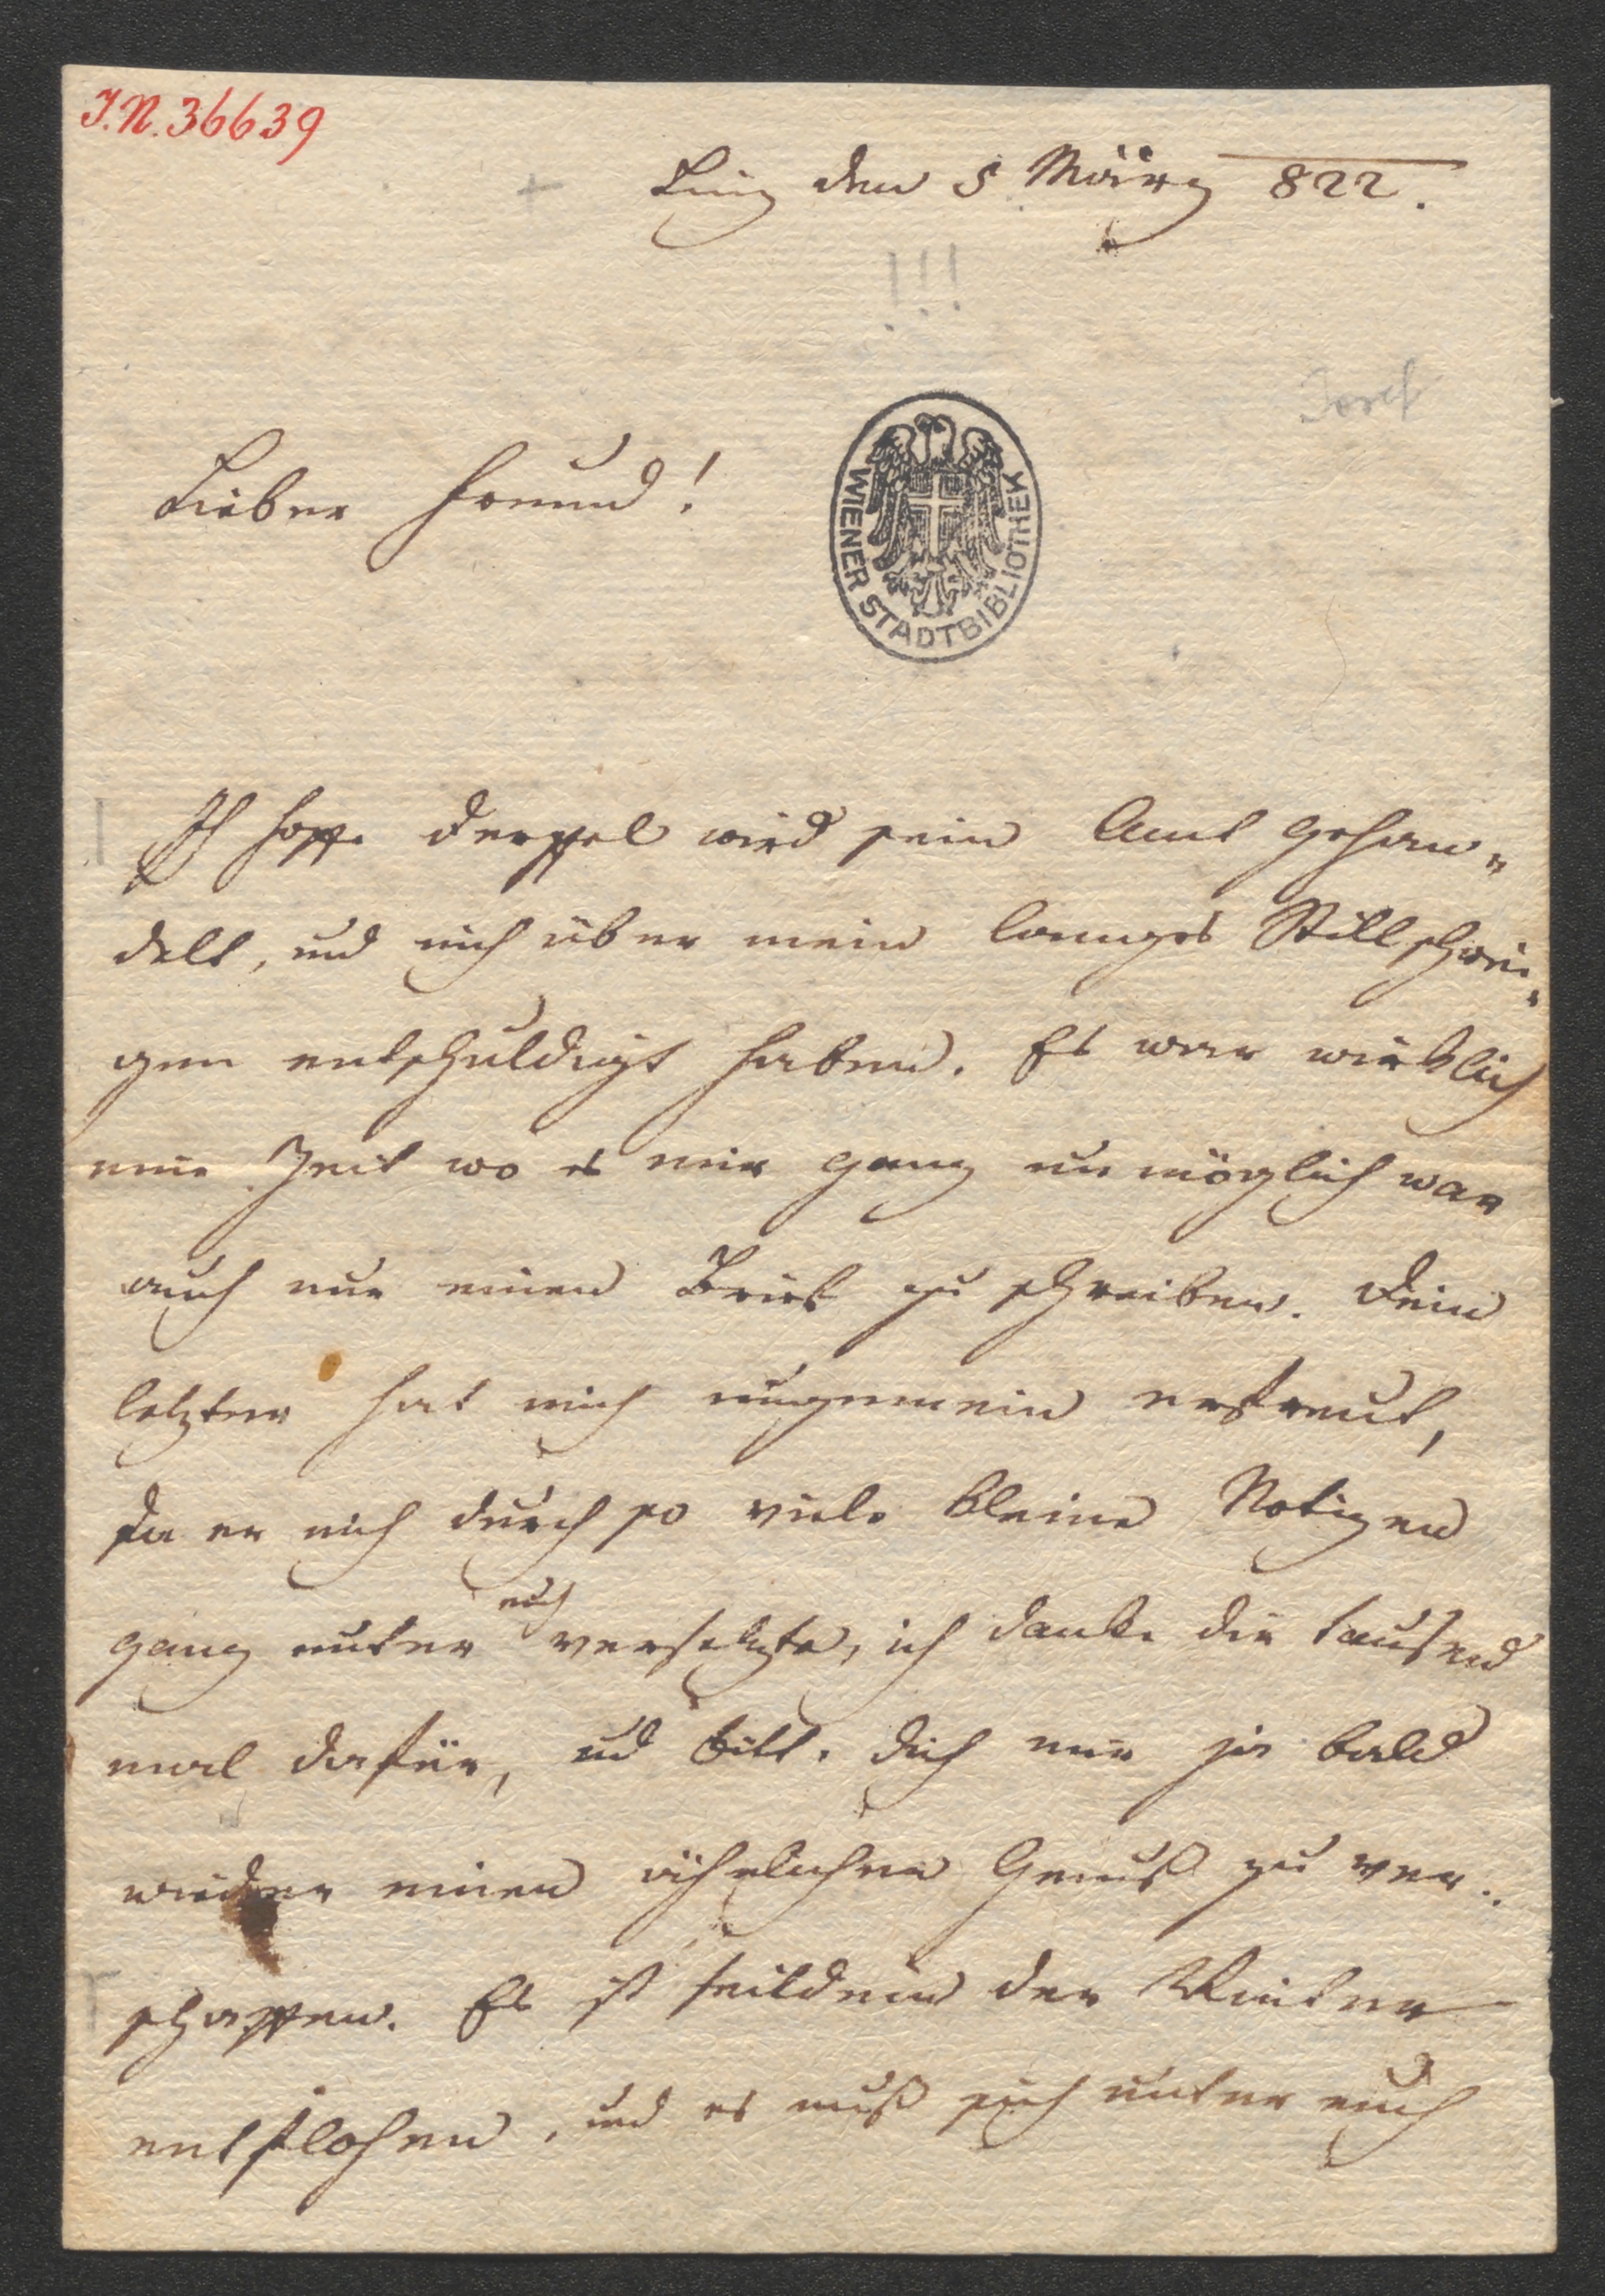 I.N. 36639
Linz den 5 März 822.
!!!
Josef
Lieber Freund!
WIENER STADTBIBLIOTHEK
Ich hoffe Derffel wird sein Amt gehan„
delt, und mich über mein langes Stillschwei„
gen entschuldigt haben. Es war wirklich
eine Zeit wo es mir ganz unmöglich war
auch nur einen Brief zu schreiben. Dein
letzter hat mich ungemein erfreut,
da er mich durch so viele kleine Notizen
euch
ganz unter versetzte, ich danke dir tausend
mal dafür, und bitte dich mir ja bald
wieder einen ähnlichen Genuß zu ver„
schaffen. Es ist seitdem der Winter
entflohen, und es muß sich unter euch